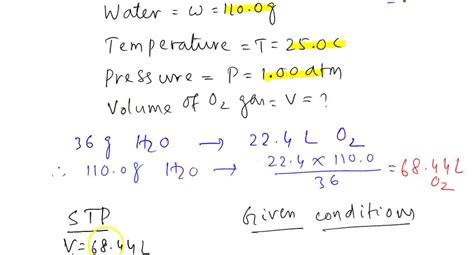 Water = w = 110.0g
Temperature = T = 25.0C
Pressure = P = 1.00 atm
Volume of O2 gas = V = ?
36 g H2O → 22.4 L O2
∴ 110.0g H2O → 22.4 x 110.0 / 36 = 68.44L O2
STP Given conditions
V1 = 68.44L